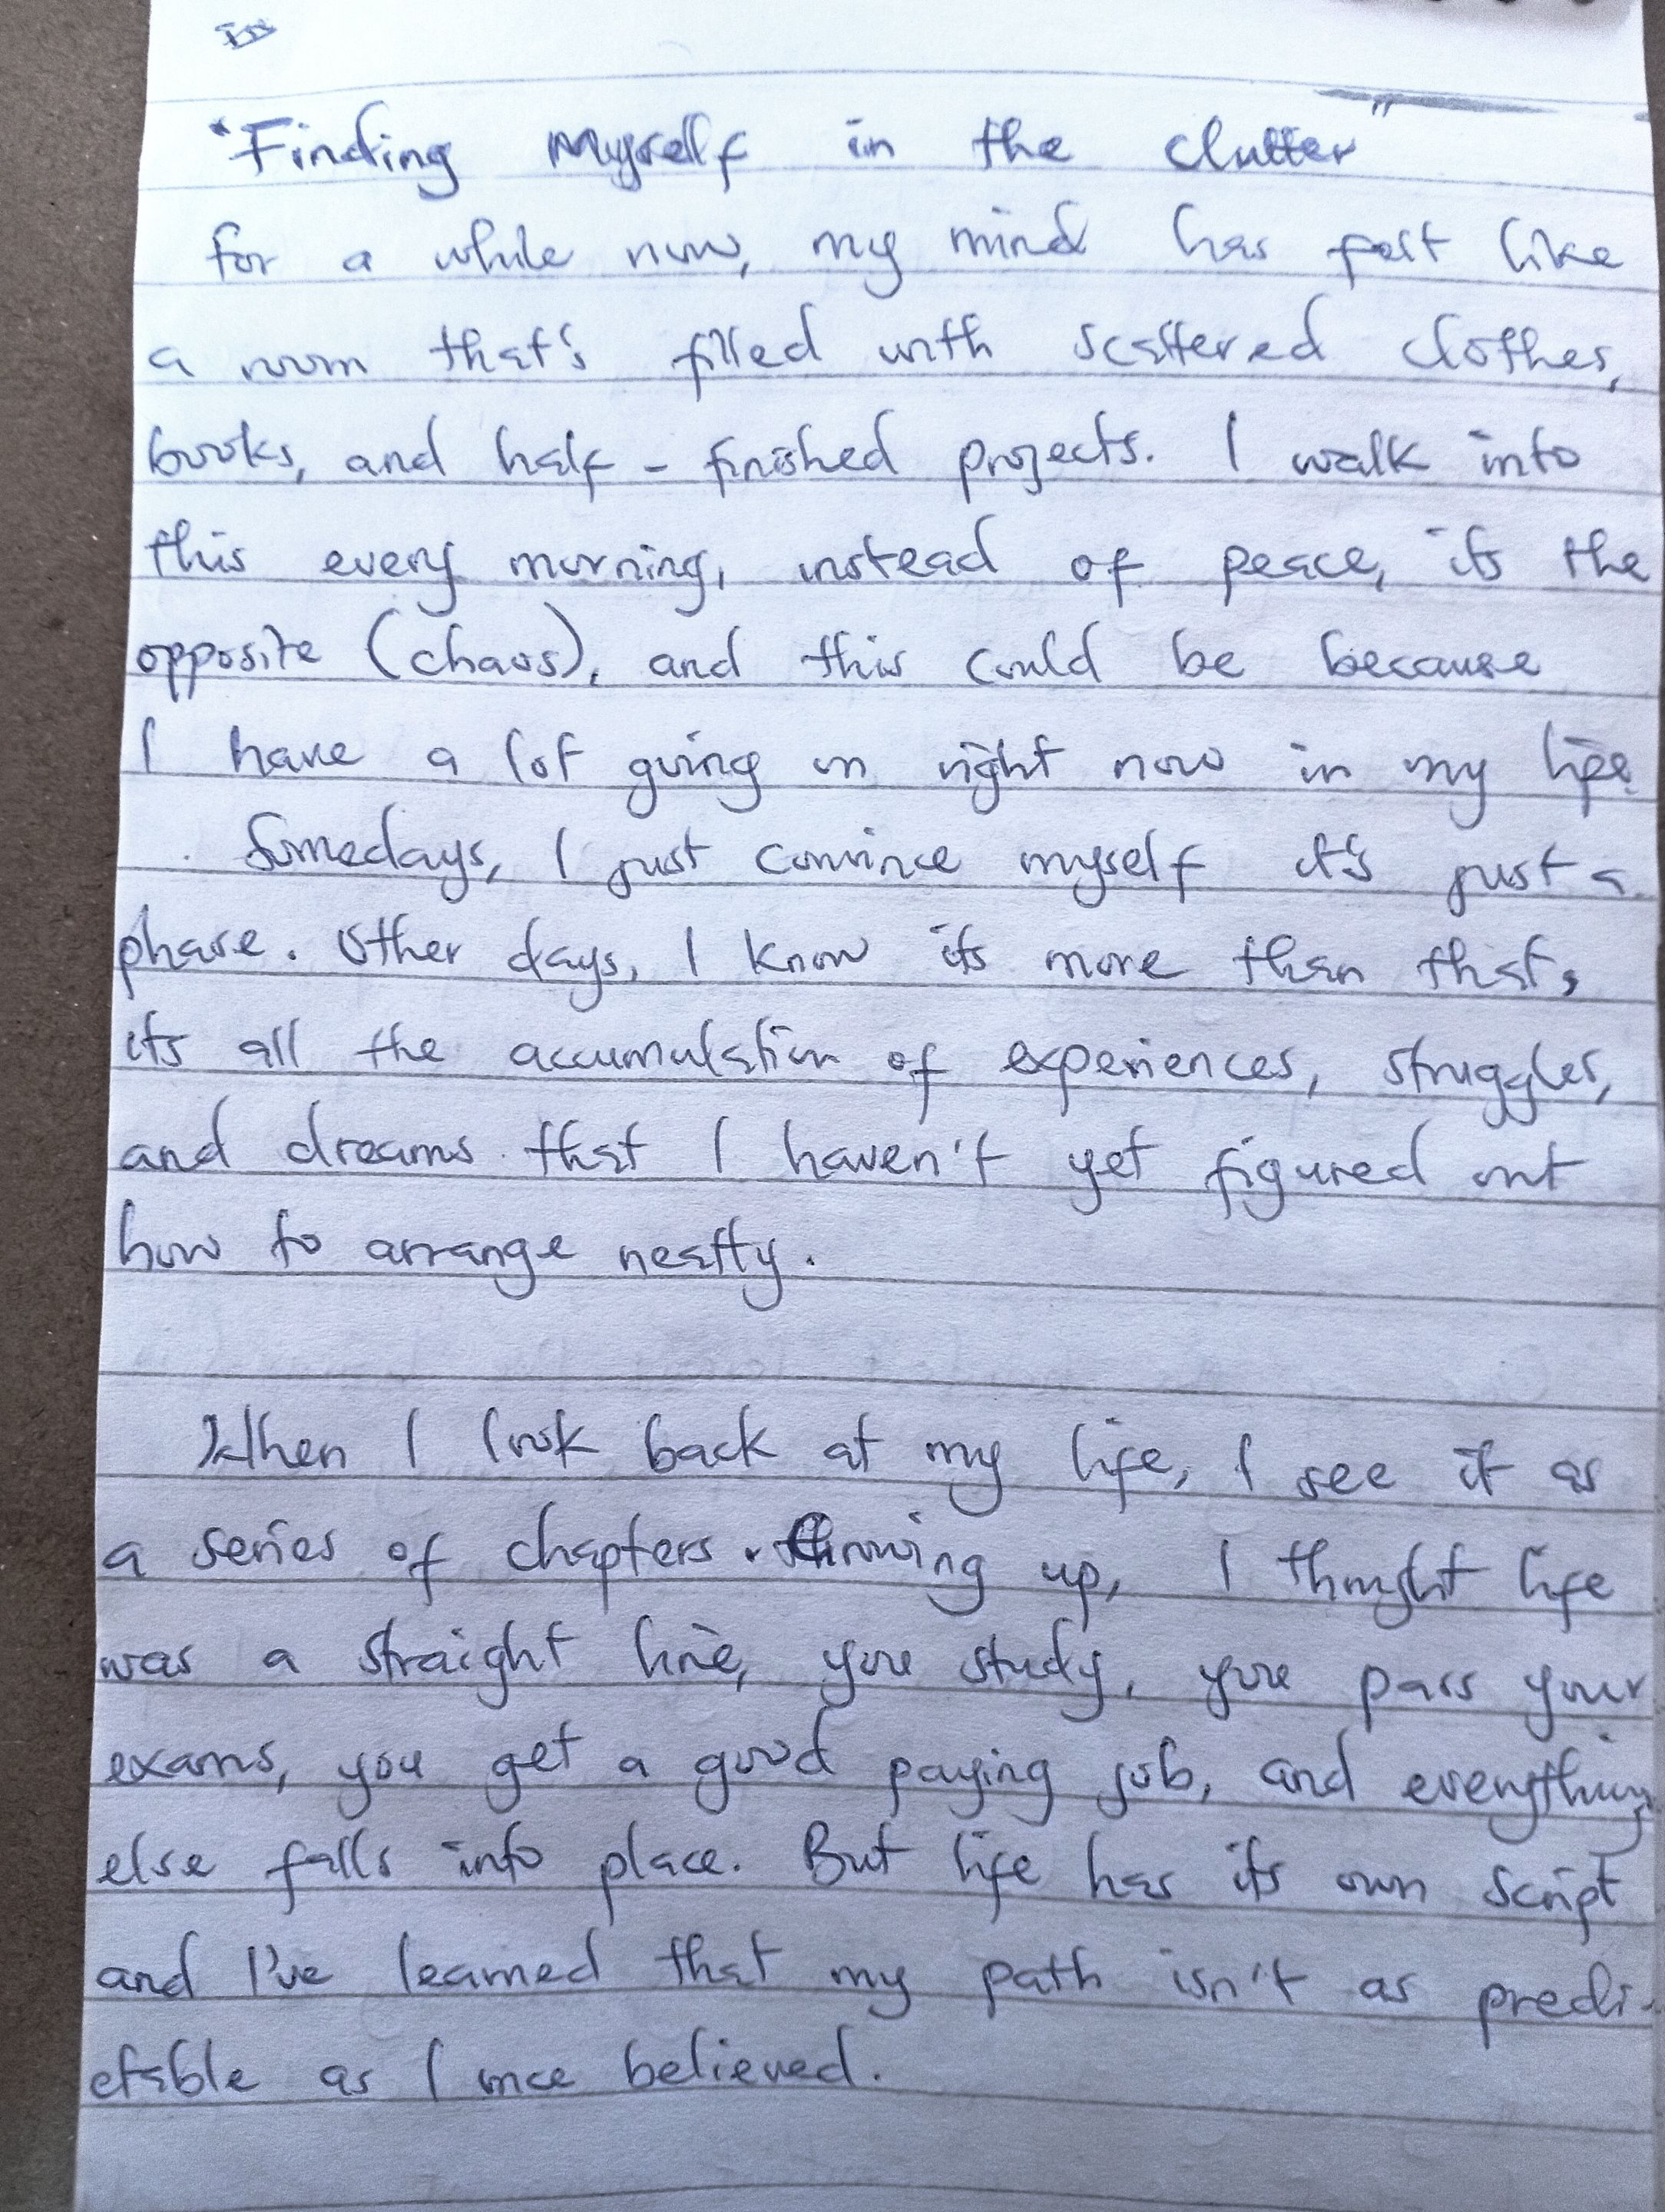 "Finding Myself in the clutter"
for a while now, my mind has felt like
a room that's filled with scattered clothes,
books, and half-finished projects. I walk into
this every morning, instead of peace, its the
opposite (chaos), and this could be because
I have a lot going on right now in my life.
Somedays, I just convince myself it's just a
phase. Other days, I know its more than that,
its all the accumulation of experiences, struggles,
and dreams that I haven't yet figured out
how to arrange neatly.
When I look back at my life, I see it as
a series of chapters. Growing up, I thought life
was a straight line, you study, you pass your
exams, you get a good paying job, and everything
else falls into place. But life has its own script
and I've learned that my path isn't as predi-
ctable as I once believed.